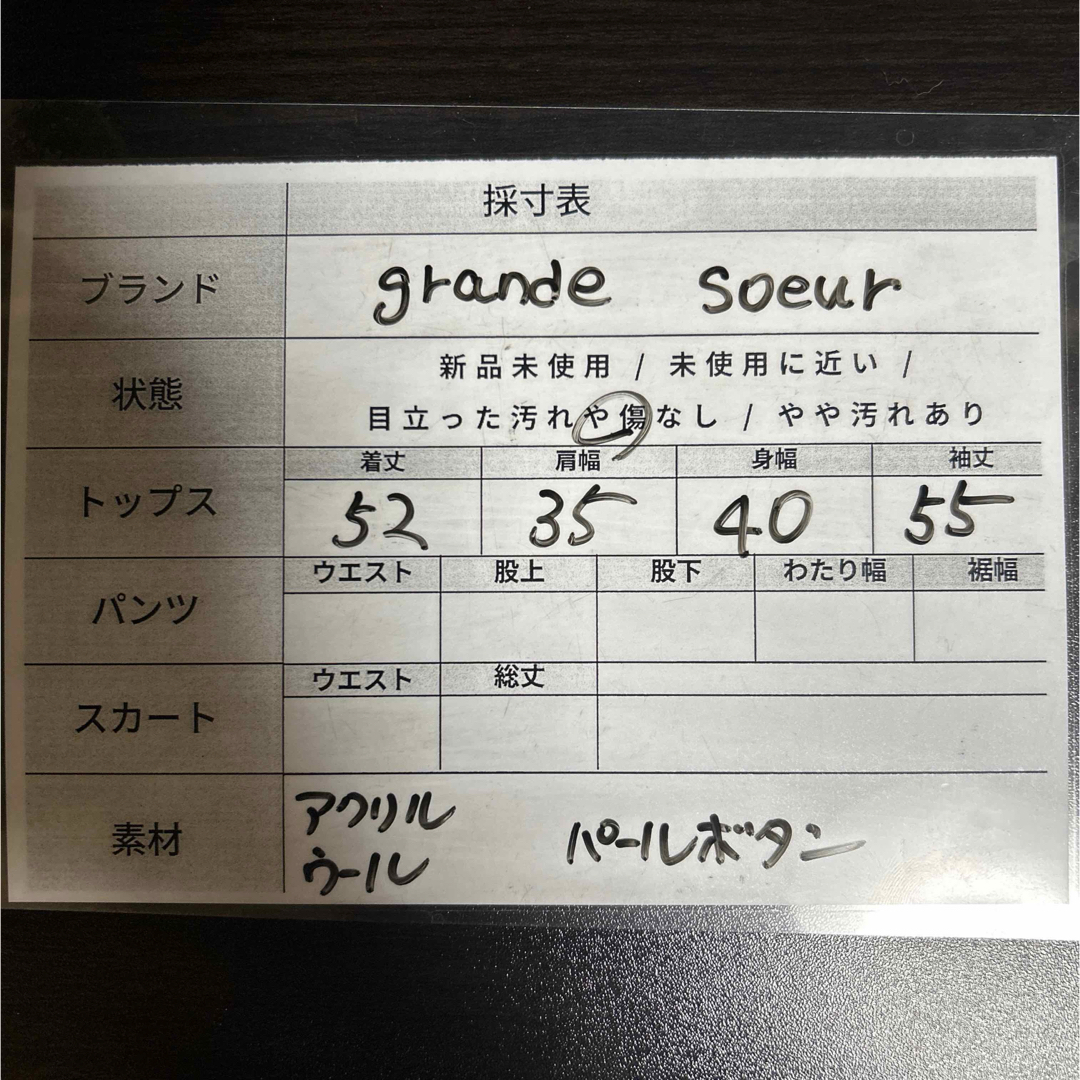 採寸表
ブランド
grande soeur
状態
新品未使用 / 未使用に近い /
目立った汚れや傷なし / やや汚れあり
トップス
着丈 肩幅 身幅 袖丈
52 35 40 55
パンツ
ウエスト 股上 股下 わたり幅 裾幅
スカート
ウエスト 総丈
素材
アクリル
ウール
パールボタン